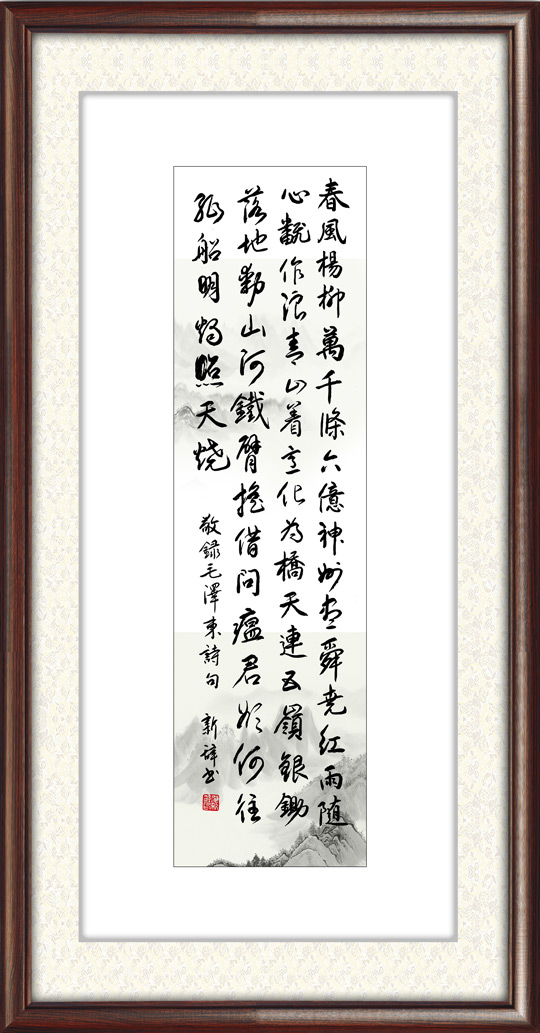 春風楊柳萬千條六億神州盡舜尭紅雨随
心飜作浪青山着意化为橋天連五嶺銀鋤
落地動山河鐵臂搖借问瘟君欲何往
紙船明燭照天烧
敬録毛澤東詩句 新璋书